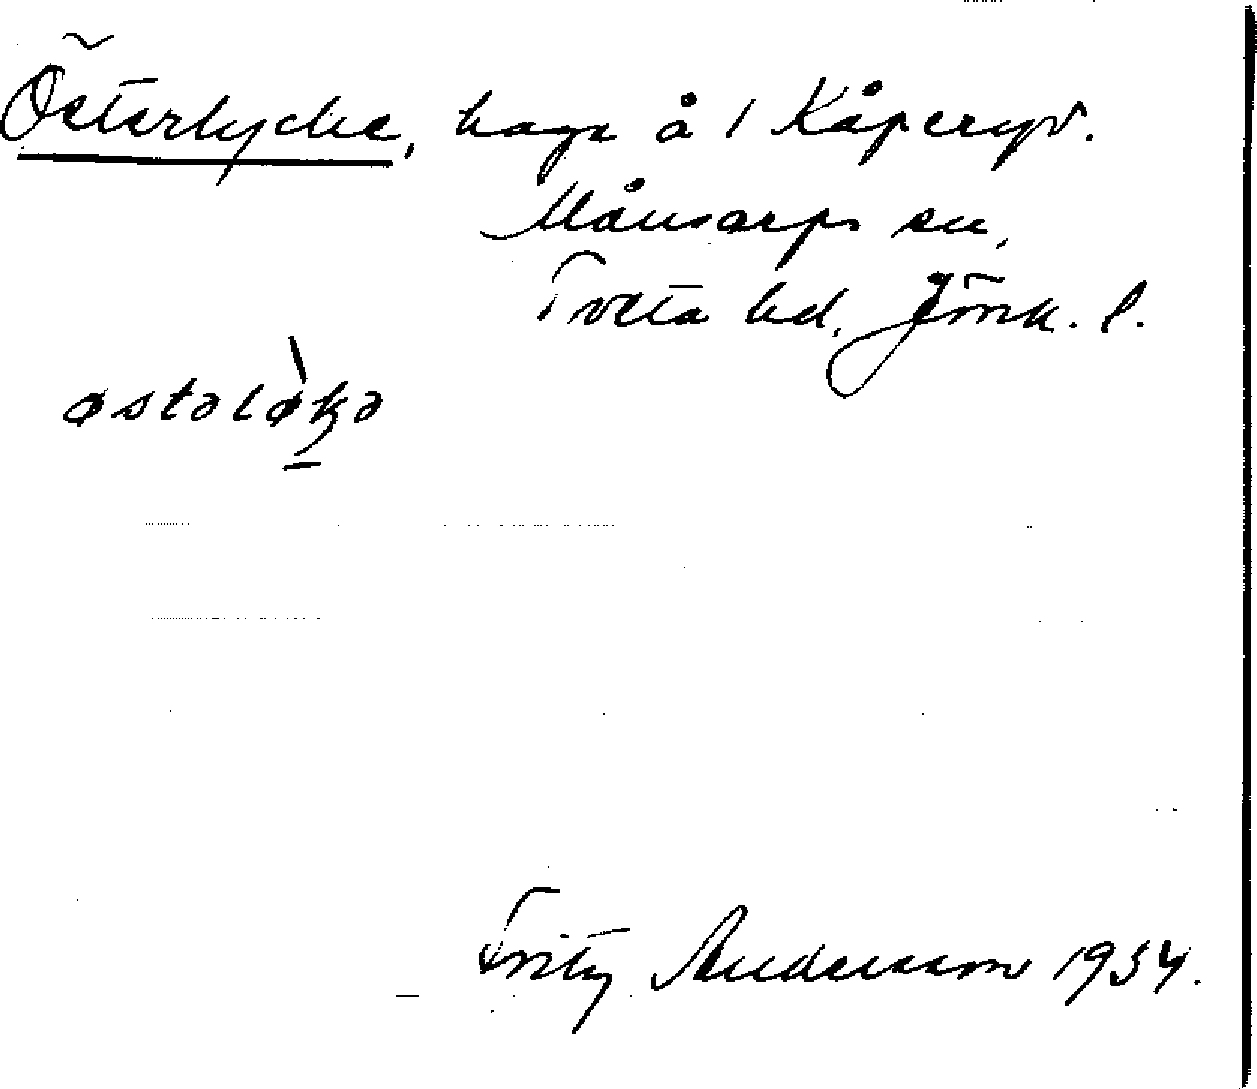 Österlycke, hage å 1 Kåperyd.
Månsarps sn,
Tveta hd, Jönk. l.
østəløkə
Fritz Andersson 1934.